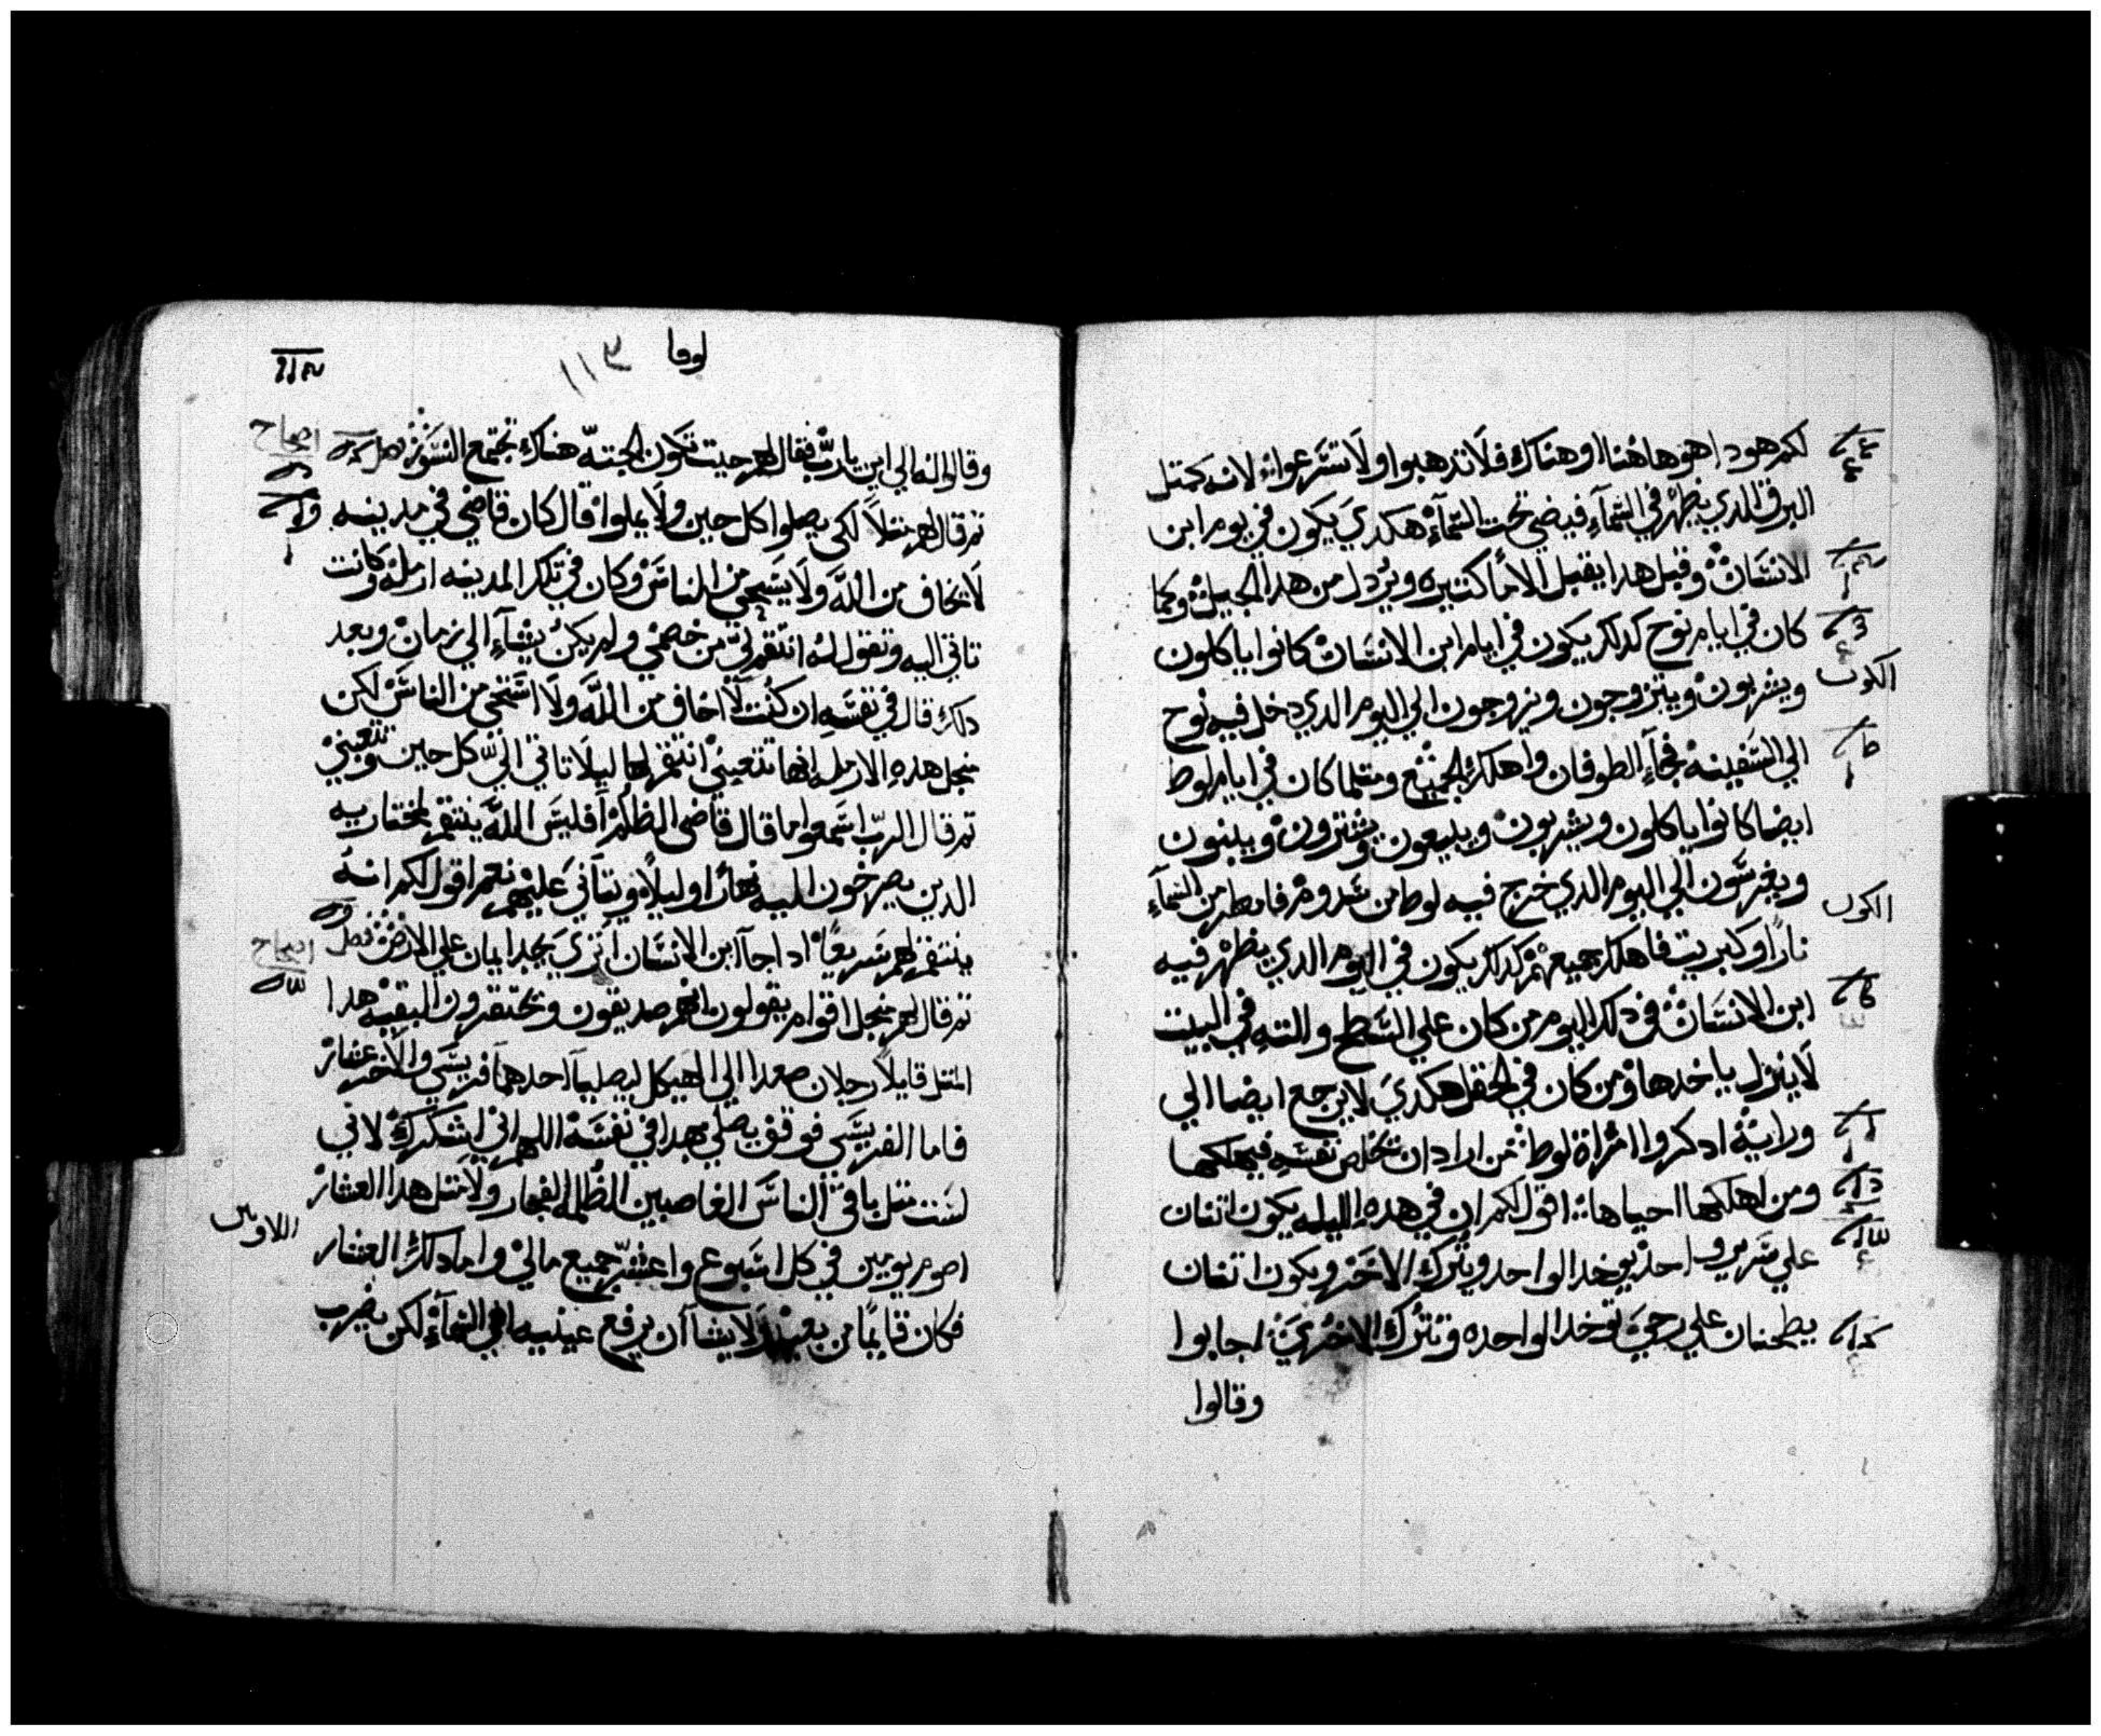 لكم هودا هو هاهنا او هناك فلا تدهبوا ولا تسرعوا لانه كمتل
البرق الدي يظهر في السمآء فيضي تحت السمآء هكدي يكون في يوم ابن
الانسان وقبل هدا يقبل الاما كتيره ويردل من هدا الجيل وكما
كان في ايام نوح كدلك يكون في ايام ابن الانسان كانوا ياكلون
ويشربون ويتزوجون ويزوجون الي اليوم الدي دخل فيه نوح
الكون
الي السفينه فجآء الطوفان واهلك الجميع ومتلما كان في ايام لوط
ايضا كانوا ياكلون ويشربون ويبيعون ويشترون ويبنون
ويغرسون الي اليوم الدي خرج فيه لوط من سدوم فامطر من السمآء
الكون
نارا وكبريت فاهلك جميعهم كدلك يكون في اليوم الدي يظهر فيه
ابن الانسان في دلك اليوم من كان علي السطح والته في البيت
لا ينزل ياخدها ومن كان في الحقل هكدي لا يرجع ايضا الي
ورايه ادكروا امراة لوط من اراد ان يخلص نفسه فيهلكها
ومن اهلكها احياها اقول لكم ان في هده الليله يكون اتنان
علي سرير واحد يوخد الواحد ويترك الاخر ويكون اتنان
يطحنان علي رحي توخد الواحده وتترك الاخري اجابوا
وقالوا
لوقا
١١٣
وقالوا له الي اين يارب فقال لهم حيت تكون الجته هناك تجتمع النسور فصل
اصحاح
تم قال لهم متلا لكي يصلوا كل حين ولا يملوا قال كان قاضي في مدينه
لا يخاف من الله ولا يستحي من الناس وكان في تلك المدينه ارمله وكانت
تاتي اليه وتقول له انتقم لي من خصمي ولم يكن يشآء الي زمان وبعد
دلك قال في نفسه ان كنت لا اخاف من الله ولا استحي من الناس لكن
منجل هده الارمله انها تتعبني انتقم لها ليلا تاتي الي كل حين وتتعبني
تم قال الرب اسمعوا ما قال قاضي الظلم افليس الله ينتقم لمختاريه
الدين يصرخون اليه نهارا وليلا ويتآني عليهم نعم اقول لكم انه
ينتقم لهم سريعا ادا جآ ابن الانسان اتري يجد ايمان علي الارض فصل
اصحاح
تم قال لهم منجل اقوام يقولون انهم صديقون وتحتقرون البقيه هدا
المتل قايلا رجلان صعدا الي الهيكل ليصليا احدهما فريسي والاخر عشار
فاما الفريسي فوقف يصلي بهدا في نفسه اللهم اني اشكرك لاني
لست متل باقي الناس الغاصبين الظلمه الفجار ولا متل هدا العشار
اللاويين
اصوم يومين في كل اسبوع واعشر جميع مالي واما دلك العشار
فكان قايما من بعيد لا يشا ان يرفع عينيه الي السمآء لكن يضرب